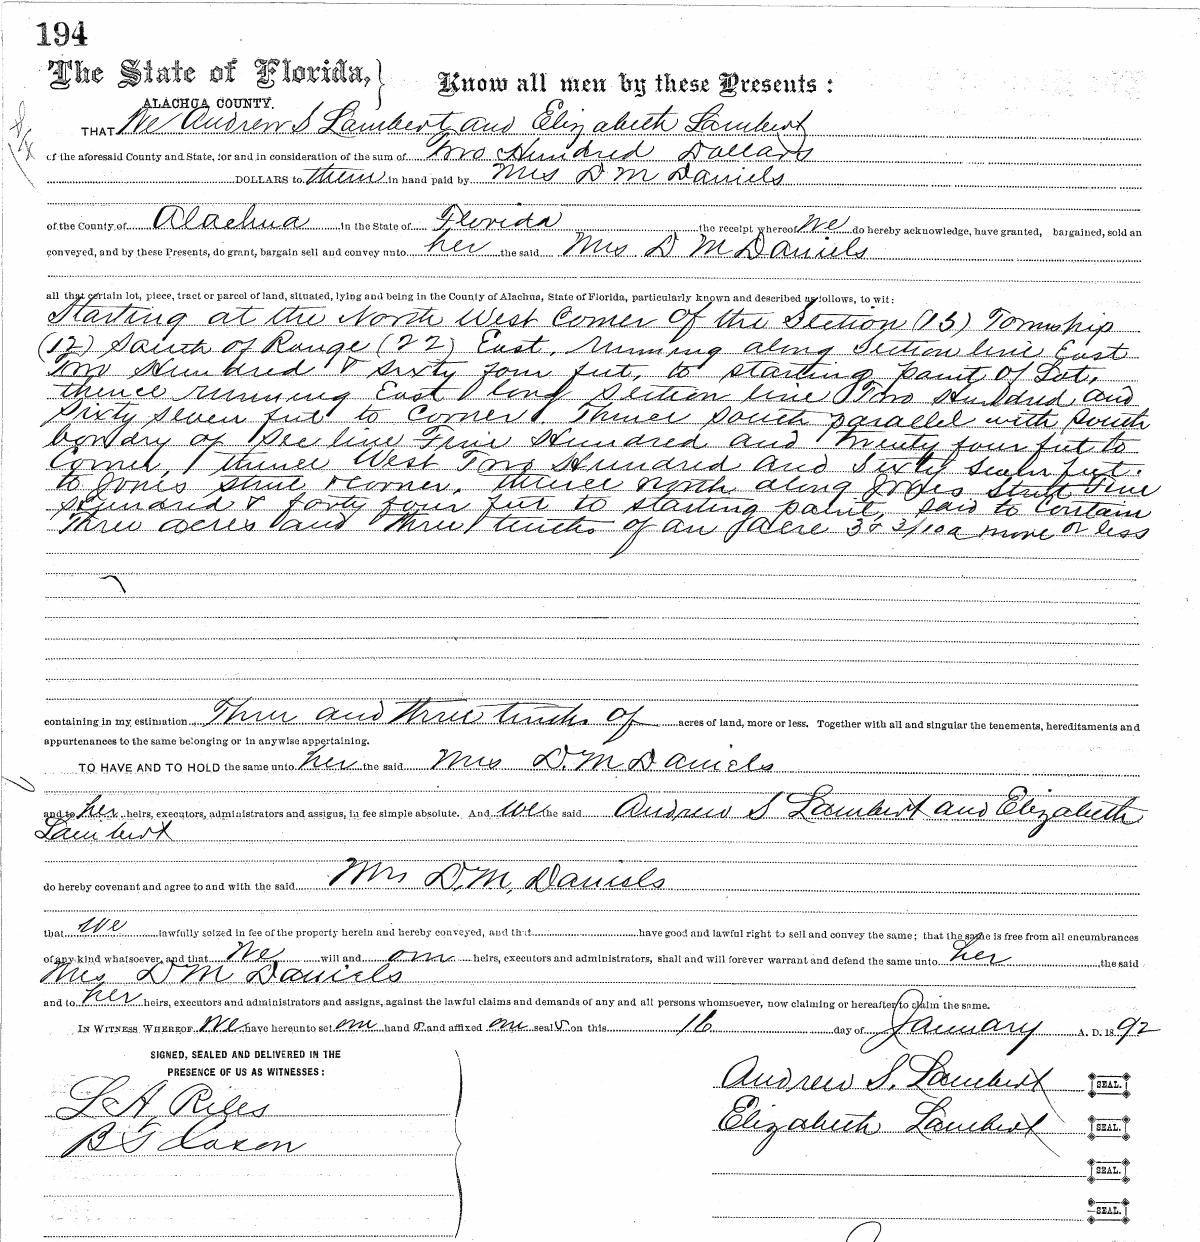 194
The State of Florida,} Know all men by these Presents:
ALACHUA COUNTY.
THAT We Andrew S Lambert and Elizabeth Lambert
of the aforesaid County and State, for and in consideration of the sum of Two Hundred Dollars
DOLLARS to them in hand paid by Mrs D M Daniels
of the County of Alachua in the State of Florida the receipt whereof We do hereby acknowledge, have granted, bargained, sold an
conveyed, and by these Presents, do grant, bargain sell and convey unto her the said Mrs D M Daniels
all that certain lot, piece, tract or parcel of land, situated, lying and being in the County of Alachua, State of Florida, particularly known and described as follows, to wit:
Starting at the North West Corner of the Section (13) Township
(12) South of Range (22) East, running along Section line East
Two Hundred & sixty four feet, to starting point of Lot,
thence running East long Section line Two Hundred and
sixty seven feet to Corner. Thence South parallel with South
bondry of Sec line Five Hundred and Twenty four feet to
Corner, thence West Two Hundred and Sixty Seven feet.
to Jones Street corner. thence north along Jones Street Five
Hundred & forty four feet to starting point, said to contain
Three acres and three tenths of an acre 3 & 3/10 a more or less
containing in my estimation Three and three tenths of acres of land, more or less. Together with all and singular the tenements, hereditaments and
appurtenances to the same belonging or in anywise appertaining.
TO HAVE AND TO HOLD the same unto her the said Mrs D. M Daniels
and to her heirs, executors, administrators and assigns, in fee simple absolute. And we the said Andrew S Lambert and Elizabeth
Lambert
do hereby covenant and agree to and with the said Mrs D. M. Daniels
that we lawfully seized in fee of the property herein and hereby conveyed, and that have good and lawful right to sell and convey the same; that the same is free from all encumbrances
of any kind whatsoever, and that We will and our heirs, executors and administrators, shall and will forever warrant and defend the same unto her the said
Mrs D M Daniels
and to her heirs, executors and administrators and assigns, against the lawful claims and demands of any and all persons whomsoever, now claiming or hereafter to claim the same.
IN WITNESS WHEREOF We have hereunto set our hand s and affixed our seal s on this 16 day of January A. D. 1892
SIGNED, SEALED AND DELIVERED IN THE
PRESENCE OF US AS WITNESSES:
Andrew S. Lambert SEAL.
L A, Riles
Elizabeth Lambert SEAL.
B G Saxon
SEAL.
SEAL.